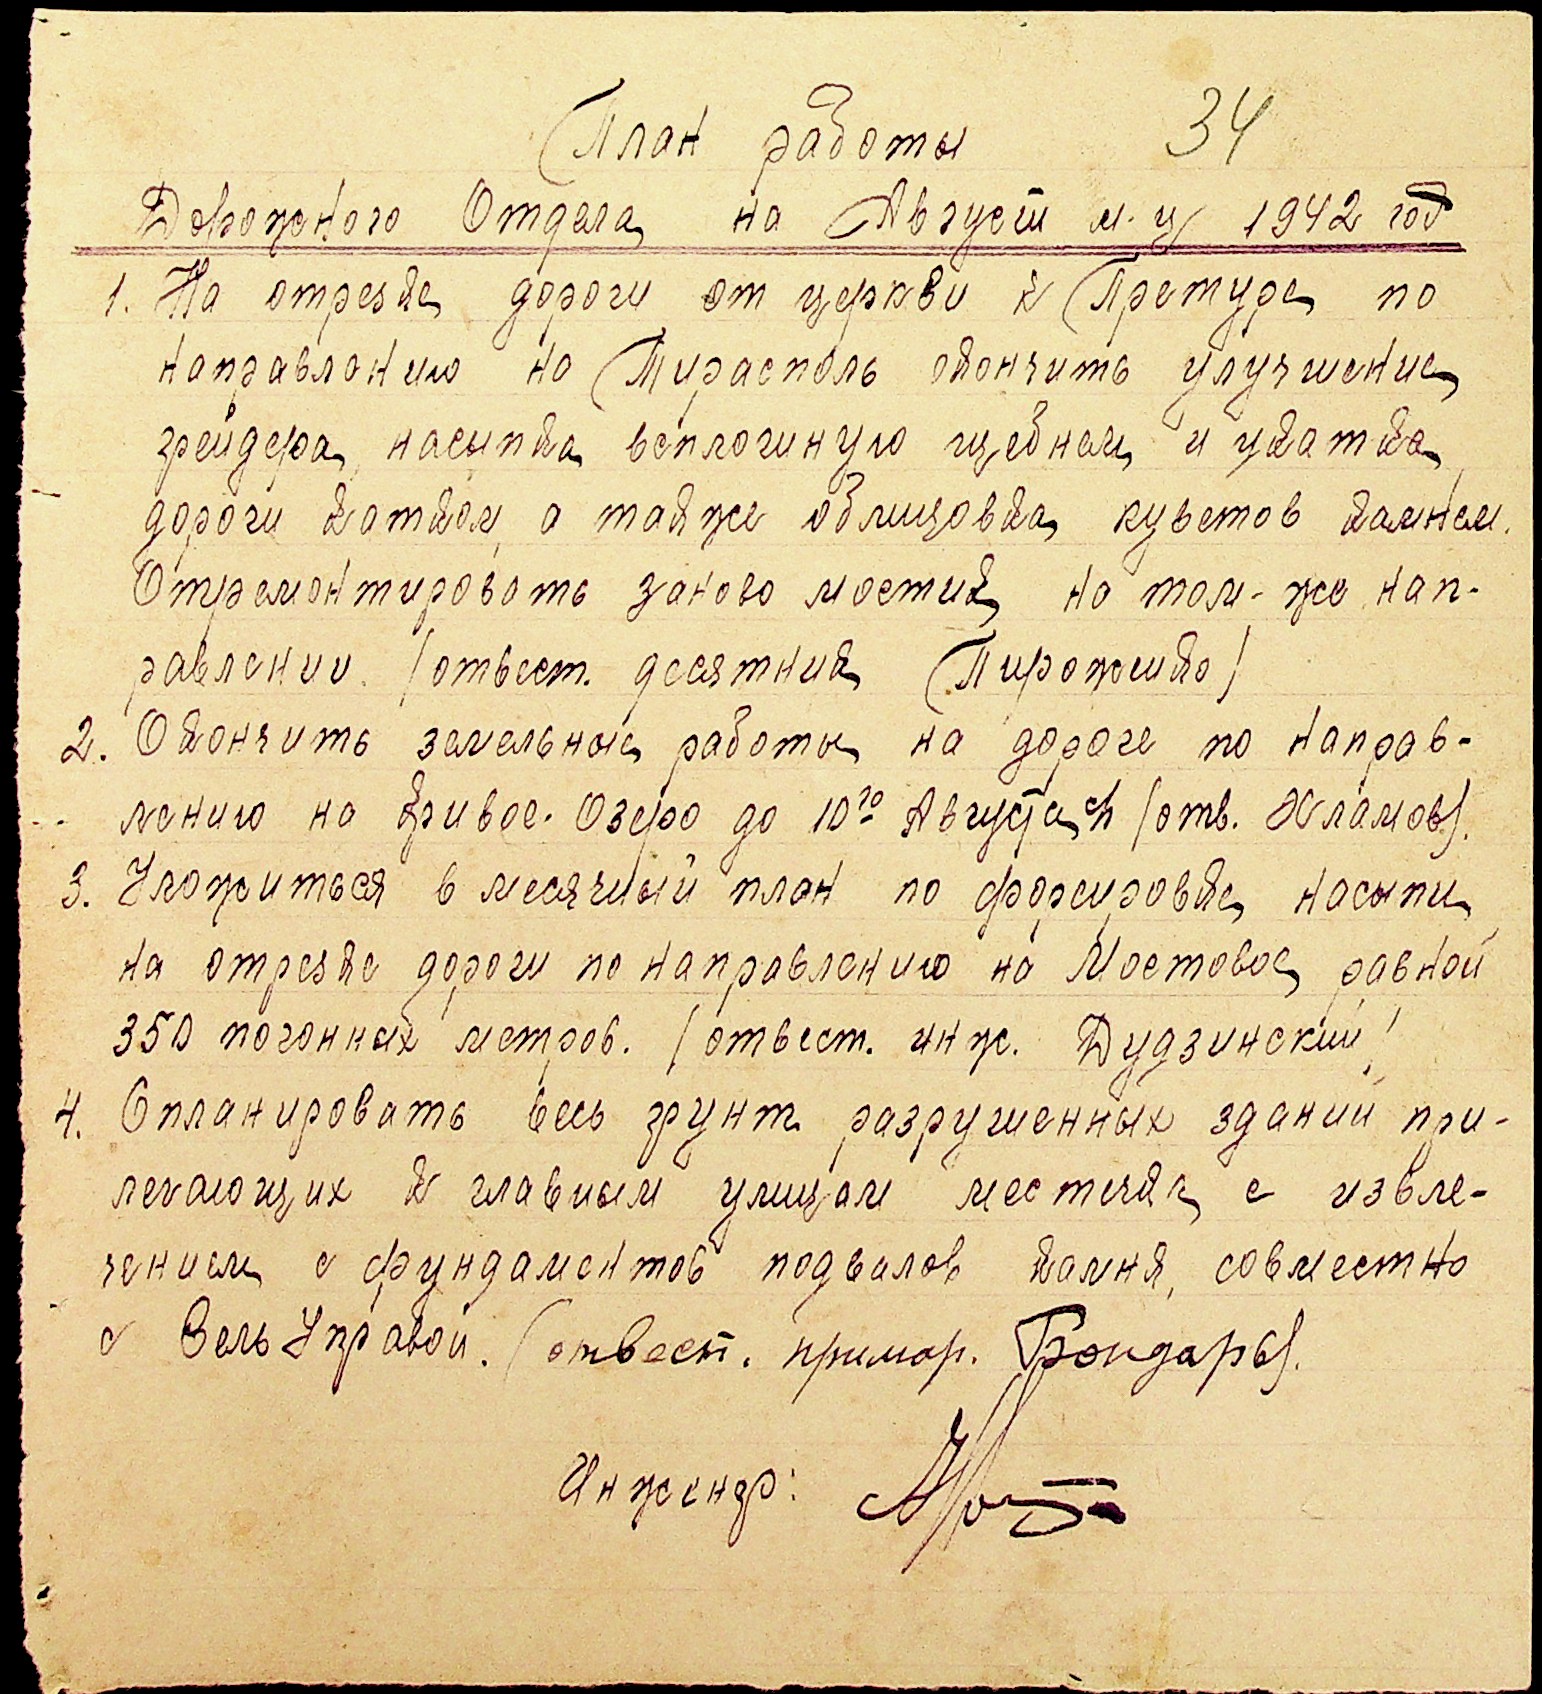 План работы 34
Дорожного Отдела на Август м-ц 1942 год
1. На отрезке дороги от церкви к Претуре по
направлению на Тирасполь окончить улучшение
грейдера, насыпка всплошную щебнем и укатка
дороги катком, а также облицовка куветов камнем.
Отремонтировать заново мостик на том-же нап-
равлении. /ответст. десятник Пироженко/
2. Окончить земельные работы на дороге по направ-
лению на Кривое-Озеро до 10го Августа /отв. Хламов/.
3. Уложиться в месячный план по форсировке насыпи
на отрезке дороги по направлению на Мостовое равной
350 погонных метров. /ответст. инж. Дудзинский/
4. Спланировать весь грунт разрушенных зданий при-
легающих к главным улицам местечка с извле-
чением с фундаментов подвалов камня, совместно
с СельУправой. (ответст. примар. Бондарь).
Инженер: